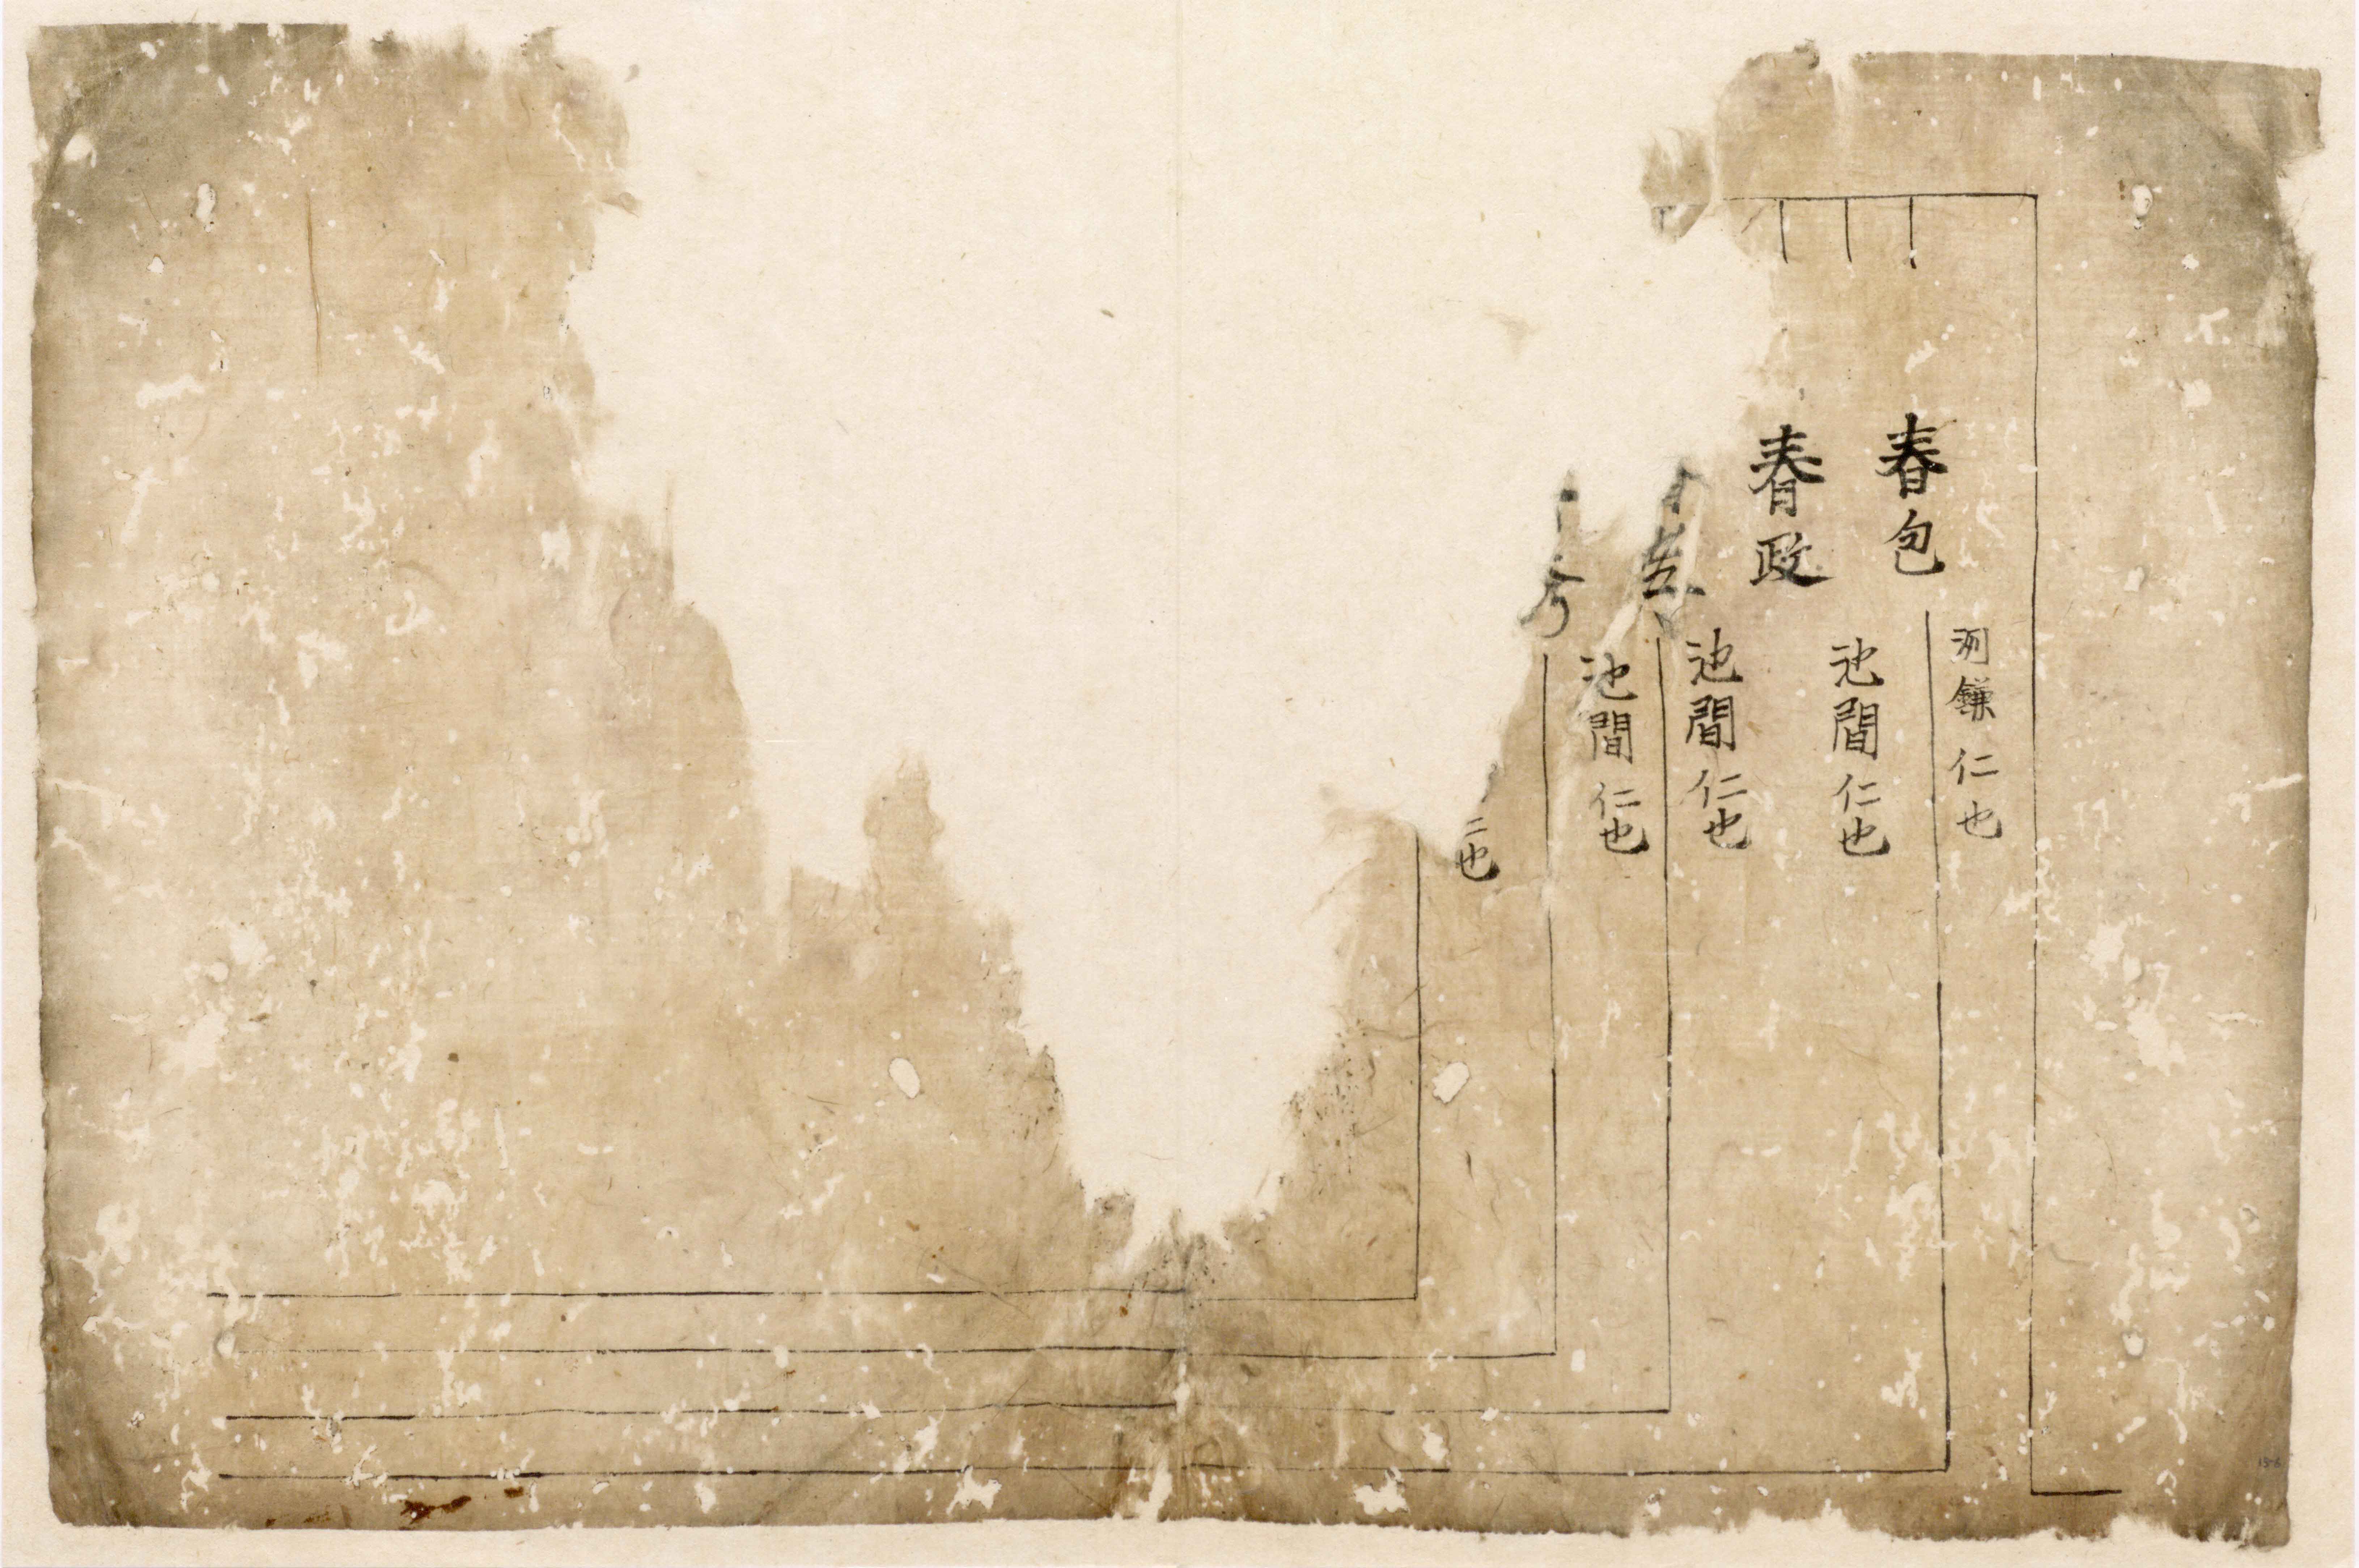 春包
洌鎌仁也
春政
池間仁也
池間仁也
池間仁也
也